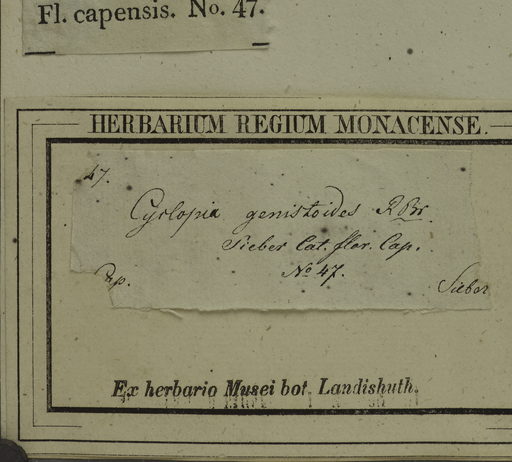 Fl. capensis. No. 47.
HERBARIUM REGIUM MONACENSE.
47.
Cyclopia genistoides R Br.
Sieber Cat. flor. Cap.
No 47.
Cap. Sieber
Ex herbario Musei bot. Landishuth.